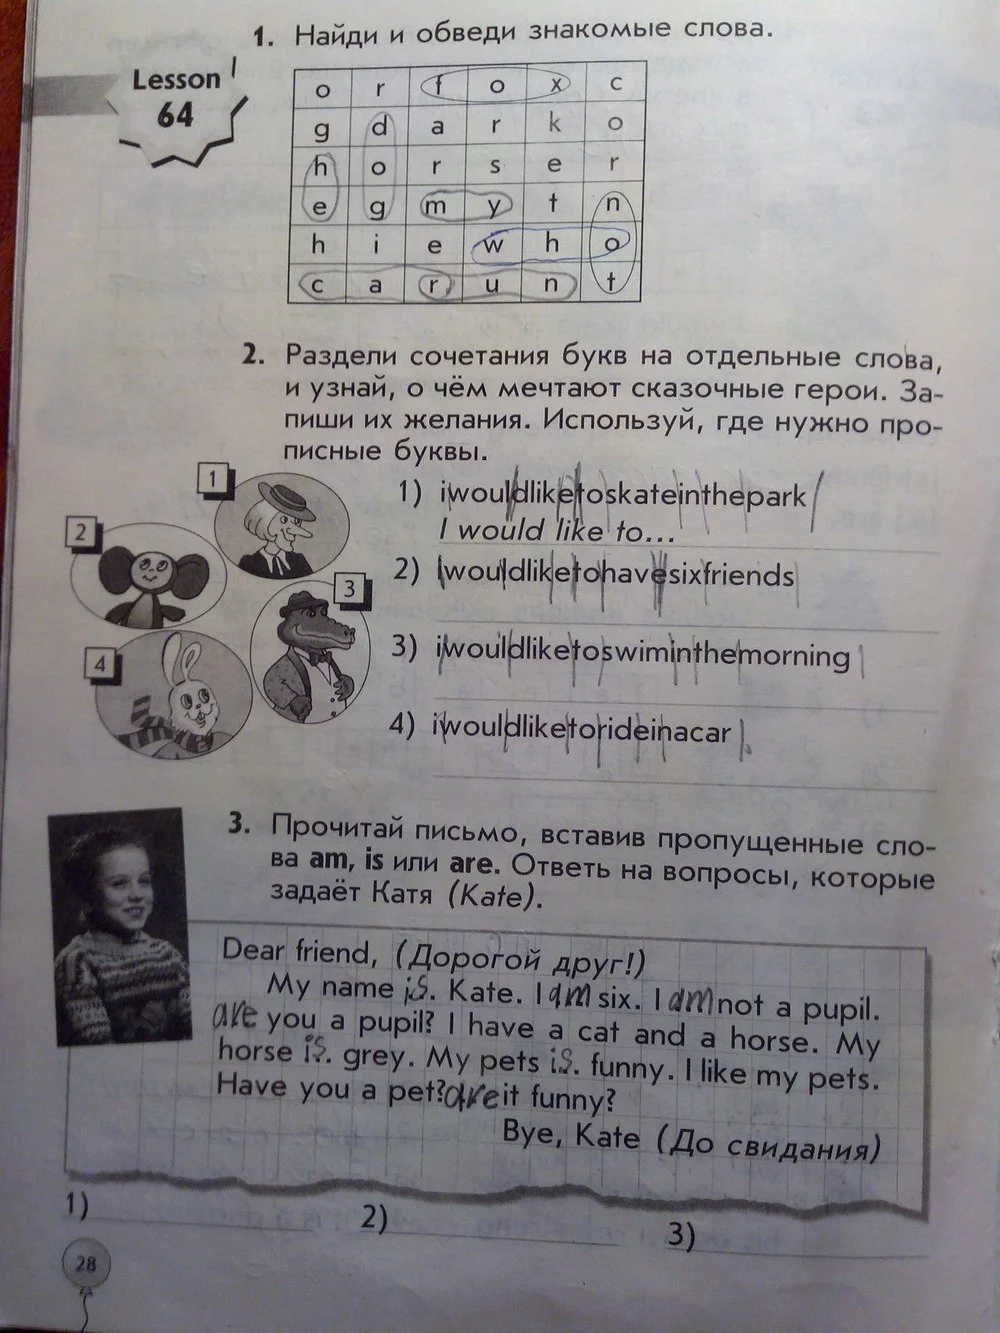 1. Найди и обведи знакомые слова.
Lesson
64
o r f o x c
g d a r k o
h o r s e r
e g m y t n
h i e w h o
c a r u n t
2. Раздели сочетания букв на отдельные слова,
и узнай, о чём мечтают сказочные герои. За-
пиши их желания. Используй, где нужно про-
писные буквы.
1
2
3
4
1) iwouldliketoskateinthepark
I would like to...
2) iwouldliketohavesixfriends
3) iwouldliketoswiminthemorning
4) iwouldliketorideinacar
3. Прочитай письмо, вставив пропущенные сло-
ва am, is или are. Ответь на вопросы, которые
задаёт Катя (Kate).
Dear friend, (Дорогой друг!)
My name is. Kate. I am six. I am not a pupil.
are you a pupil? I have a cat and a horse. My
horse is. grey. My pets is. funny. I like my pets.
Have you a pet? are it funny?
Bye, Kate (До свидания)
1)
2)
3)
28